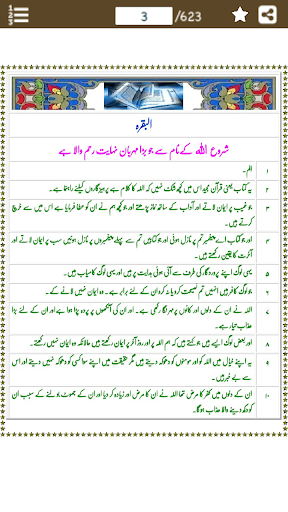 3 /623
البقرہ
شروع اللہ کے نام سے جو بڑا مہربان نہایت رحم والا ہے
۱ الم۔
۲ یہ کتاب یعنی قرآن مجید اس میں کچھ شک نہیں کہ اللہ کا کلام ہے پرہیزگاروں کیلئے راہنما ہے۔
۳ جو غیب پر ایمان لاتے اور آداب کے ساتھ نماز پڑھتے اور جو کچھ ہم نے ان کو عطا فرمایا ہے اس میں سے خرچ
کرتے ہیں۔
۴ اور جو کتاب اے پیغمبر تم پر نازل ہوئی اور جو کتابیں تم سے پہلے پیغمبروں پر نازل ہوئیں سب پر ایمان لاتے اور
آخرت کا یقین رکھتے ہیں۔
۵ یہی لوگ اپنے پروردگار کی طرف سے آئی ہوئی ہدایت پر ہیں اور یہی لوگ کامیاب ہیں۔
۶ جو لوگ کافر ہیں انہیں تم نصیحت کرو یا نہ کرو ان کے لئے برابر ہے۔ وہ ایمان نہیں لانے کے۔
۷ اللہ نے ان کے دلوں اور کانوں پر مہر لگا رکھی ہے۔ اور ان کی آنکھوں پر پردہ پڑا ہوا ہے اور ان کے لئے بڑا
عذاب تیار ہے۔
۸ اور بعض لوگ ایسے ہیں جو کہتے ہیں کہ ہم اللہ پر اور روز آخر پر ایمان رکھتے ہیں حالانکہ وہ ایمان نہیں رکھتے۔
۹ یہ اپنے خیال میں اللہ کو اور مومنوں کو دھوکہ دیتے ہیں مگر حقیقت میں اپنے سوا کسی کو دھوکہ نہیں دیتے اور اس
سے بے خبر ہیں۔
۱۰ ان کے دلوں میں کفر کا مرض تھا اللہ نے ان کا مرض اور زیادہ کر دیا اور ان کے جھوٹ بولنے کے سبب ان
کو دکھ دینے والا عذاب ہوگا۔